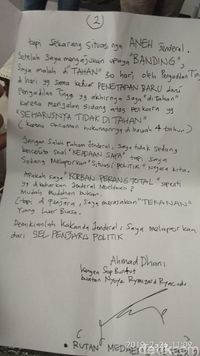 2
tapi sekarang situasinya ANEH Jenderal.
Setelah saya mengajukan upaya "BANDING",
saya malah di "TAHAN" 30 hari oleh Pengadilan Tinggi
di hari yg sama keluar PENETAPAN BARU dari
Pengadilan Tinggi yg akhirnya saya "ditahan"
karena menjalani sidang atas perkara yg
"SEHARUSNYA TIDAK DITAHAN"
(karena ancaman hukumannya dibawah 4 tahun)
Jangan salah Paham Jenderal, saya tidak sedang
bercerita soal "KEADAAN SAYA" tapi saya
sedang melaporkan "Situasi POLITIK" Negara kita.
Apakah saya "KORBAN PERANG TOTAL" seperti
yg dikabarkan Jenderal Moeldoko?
Mudah Mudahan bukan.
(tapi di penjara, saya merasakan "TEKANAN"
yang Luar Biasa.
Demikianlah Kakanda Jenderal, saya melaporkan
dari SEL PENJARA POLITIK
Ahmad Dhani
RUTAN MEDAENG